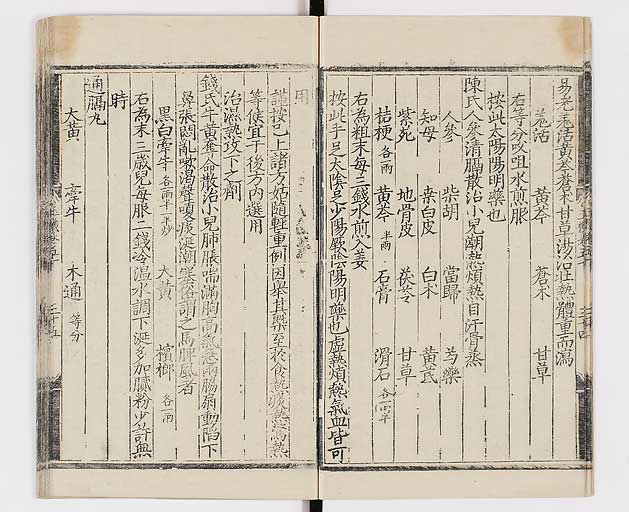 易老羌活黃芩蒼朮甘草湯治壯熱體重而瀉
羌活 黃芩 蒼朮 甘草
右等分㕮咀水煎服
按此太陽陽明藥也
陳氏人參清膈散治小兒潮熱煩熱自汗骨蒸
人參 柴胡 當歸 芍藥
知母 桑白皮 白朮 黃芪
紫菀 地骨皮 茯苓 甘草
桔梗各一兩 黃芩半兩 石膏 滑石各一兩半
右為粗末每三錢水煎入姜
按此手足太陰足少陽厥陰陽明藥也虛熱煩熱氣血皆可
用
謹按已上諸方姑隨輕重例因舉其藥至於食熱
等候宜于後方內選用
治濕熱攻下之劑
錢氏牛黃奪命散治小兒肺脹喘滿胸高氣急兩脇扇動陷下
鼻張悶亂嗽渴聲嗄痰涎潮塞俗謂之馬脾風者
黑白牽牛各一兩半生半炒 大黃 檳榔各一兩
右為末三歲兒每服二錢冷温水調下涎多加膩粉少許無
時
通膈丸
大黃 牽牛 木通等分